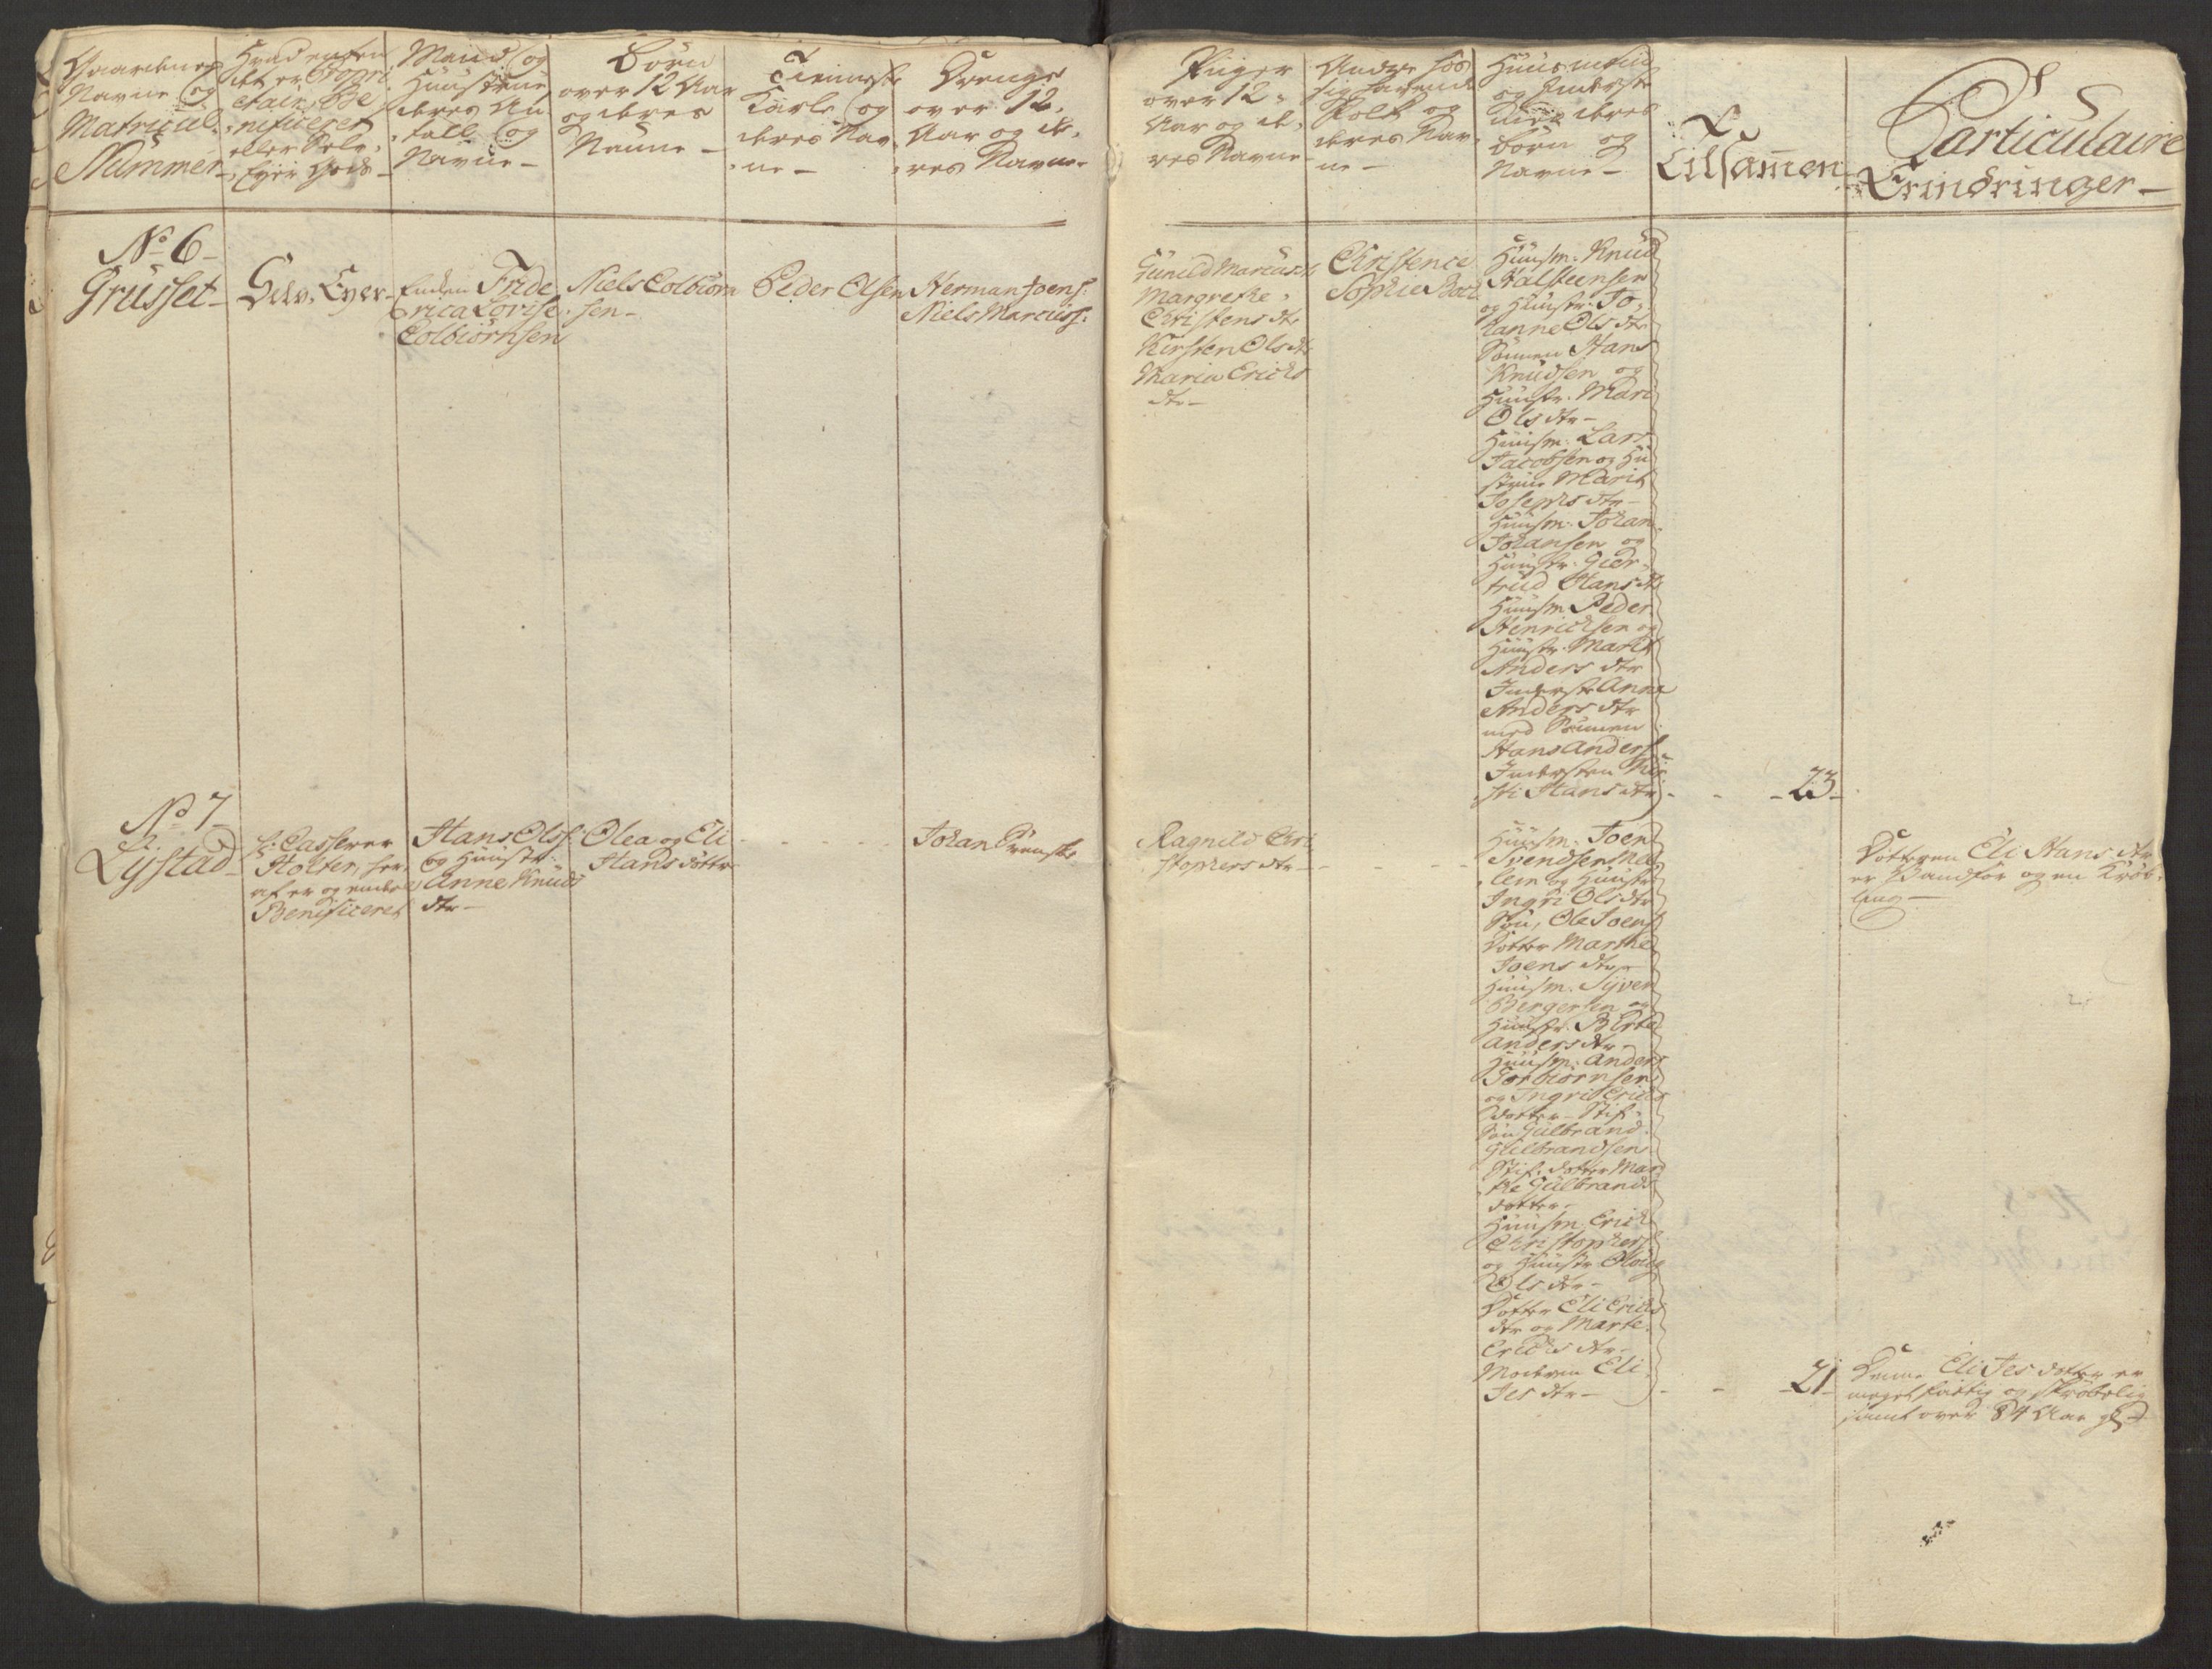 Gaardenes
Navne og
Matricul
Nummer
Hvad enten
det er Propri
etair, Be
nificeret
eller Selv
Eyer Gods
Mand og
Huustrue
deres An
tall og
Navne
Børn
over 12 Aar
og deres
Navne
Tieniste
Karle og
deres Nav
ne
Drenge
over 12
Aar og de
res Navne
Piiger
over 12
Aar og de
res Navne
Andre hos
sig havende
Folk og
deres Nav
ne
Huusmænd
og Inderste
deres
Børn og
Navne
Tilsamen
Particulaire
Erindringer
No 6
Grusset
Selv Eyer
Enken Fride
rica Lovise
Colbiørnsen
Niels Colbiørn
sen
Peder Olsen
Herman Joens:
Niels Marcuss:
Gunild Marcusdtr
Margrethe
Christensdtr
Kirsten Olsdtr
Maria Erichs
dtr
Christence
Sophie Bach
Huusm: Knud
Halsteensen
og Huustr: Jo
hanne Olsdtr
Sønnen Hans
Knudsen og
Huustr: Mari
Olsdtr
Huusm: Lars
Jacobsen og Hu
strue Marit
Josephsdtr
Huusm: Johan
Johansen og
Huustr: Gier
trud Hansdtr
Huusm: Peder
Henrichsen og
Huustr: Marit
Andersdtr
Inderste Anne
Andersdtr
med Sønnen
Hans Anders:
Indersten Kir
sti Hansdtr
23
No 7
Lystad
H: Casserer
Holter, her
af er og endeel
Benificeret
Hans Ols:
og Huustr:
Anne Knuds
dtr
Olea og Eli
Hans døttre
Johan Svenske
Ragnild Chri
stophersdtr
Huusm: Joen
Svendsen Mæ
len og Huustr
Ingri Olsdtr
Søn, Ole Joens
Dotter Marthe
Joensdtr
Huusm: Syver
Bergersen og
Huustr: Birte
Andersdtr
Huusm: Anders
Torbiørnsen
og Ingri Erichs
dotter Stif
Søn Gulbrand
Gulbrandsen
Stif dotter Mar
the Gulbrands
dotter
Huusm: Erich
Christophers:
og Huustr Oloug
Olsdtr
Dotter Eli Erichs
dtr og Marte
Erichsdtr
Moderen Eli
Jesdtr
21
Dotteren Eli Hansdtr
er Vandfør og en Krøb
ling
Denne Eli Jes dotter er
meget fattig og skrøbelig
samt over 84 Aar gl